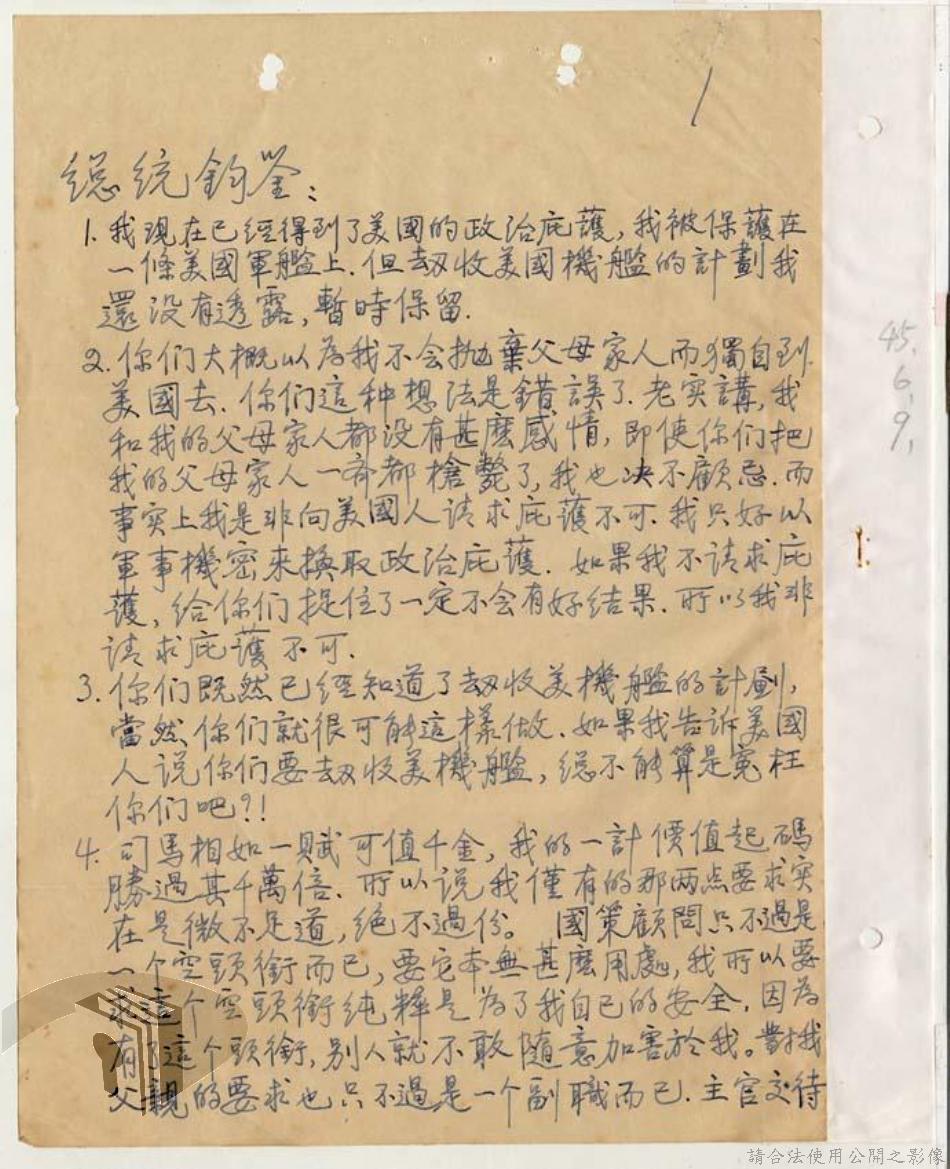 1
总统鈞鉴：
1. 我現在已经得到了美國的政治庇護，我被保護在
一條美國軍艦上. 但刼收美國機艦的計劃我
還没有透露，暫時保留.
2. 你们大概以为我不会抛棄父母家人而獨自到
美國去. 你们這种想法是錯誤了. 老实講，我
和我的父母家人都没有甚麽感情，即使你们把
我的父母家人一齐都槍斃了，我也决不顧忌. 而
事实上我是非向美國人请求庇護不可. 我只好以
軍事機密來換取政治庇護. 如果我不请求庇
護，给你们捉住了一定不会有好结果. 所以我非
请求庇護不可.
3. 你们既然已经知道了刼收美機艦的計劃，
當然你们就很可能這樣做. 如果我告訴美國
人说你们要刼收美機艦，总不能算是冤枉
你们吧？！
4. 司馬相如一赋可值千金，我的一計價值起碼
勝過其千萬倍. 所以说我僅有的那两点要求实
在是微不足道，绝不過份。 國策顧問只不過是
一个空頭銜而已，要它本無甚麽用處，我所以要
求這个空頭銜纯粹是为了我自己的安全. 因为
有了這个頭銜，别人就不敢隨意加害於我。對我
父親的要求也只不過是一个副職而已. 主官交待
45.
6.
9.
請合法使用公開之影像